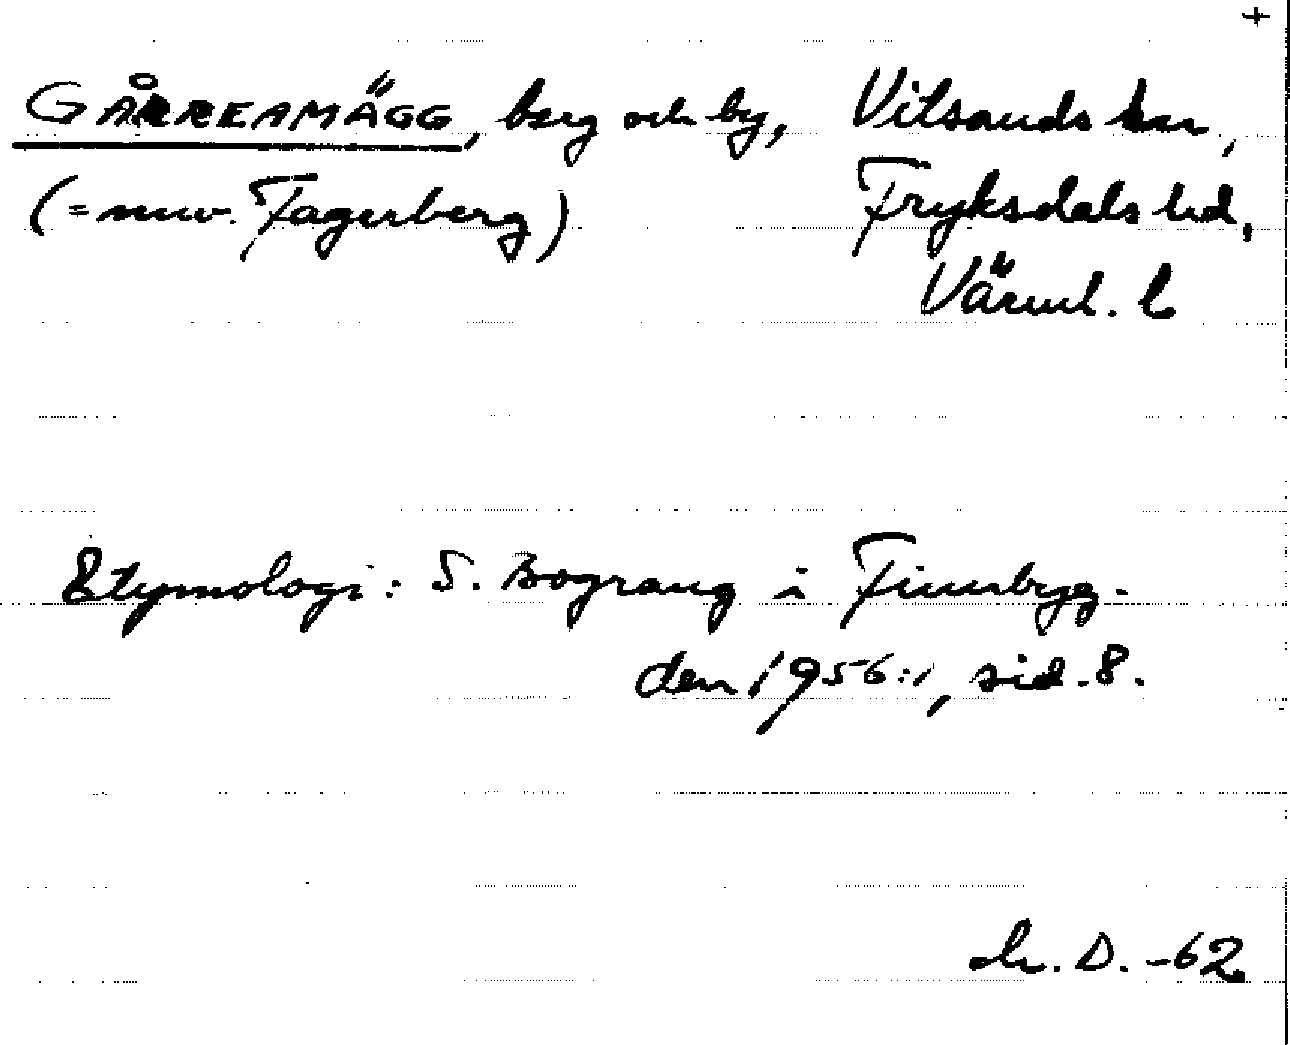 +
GÅRREAMÄGG, berg och by, Vitsands sn,
(= nuv. Fagerberg) Fryksdals hd,
Värml. l
Etymologi: S. Bograng i Finnbyg-
den 1956:1, sid. 8.
D. -62